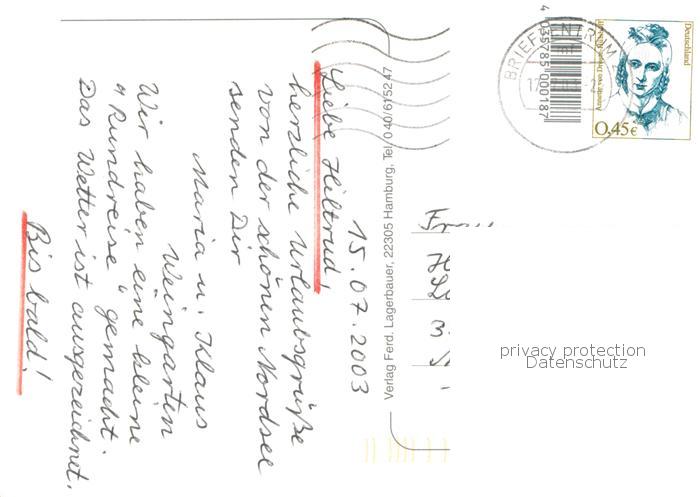 15.07.2003
Liebe Hiltrud!
herzliche Urlaubsgrüße
von der schönen Nordsee
senden Dir
Maria u. Klaus
Weingarten
Wir haben eine kleine
"Rundreise" gemacht.
Das Wetter ist ausgezeichnet.
Bis bald!
Verlag Ferd. Lagerbauer, 22305 Hamburg, Tel. 040/615247
4 035785 000187
BRIEFZENTRUM
Deutschland
Annette von
0,45€
privacy protection
Datenschutz